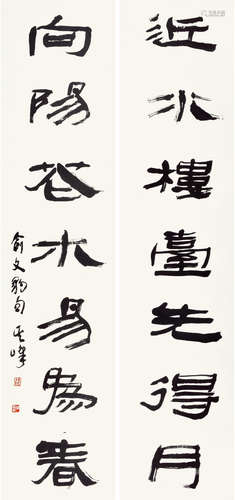 近水樓臺先得月
向陽花木易為春
俞文豹句 其峰